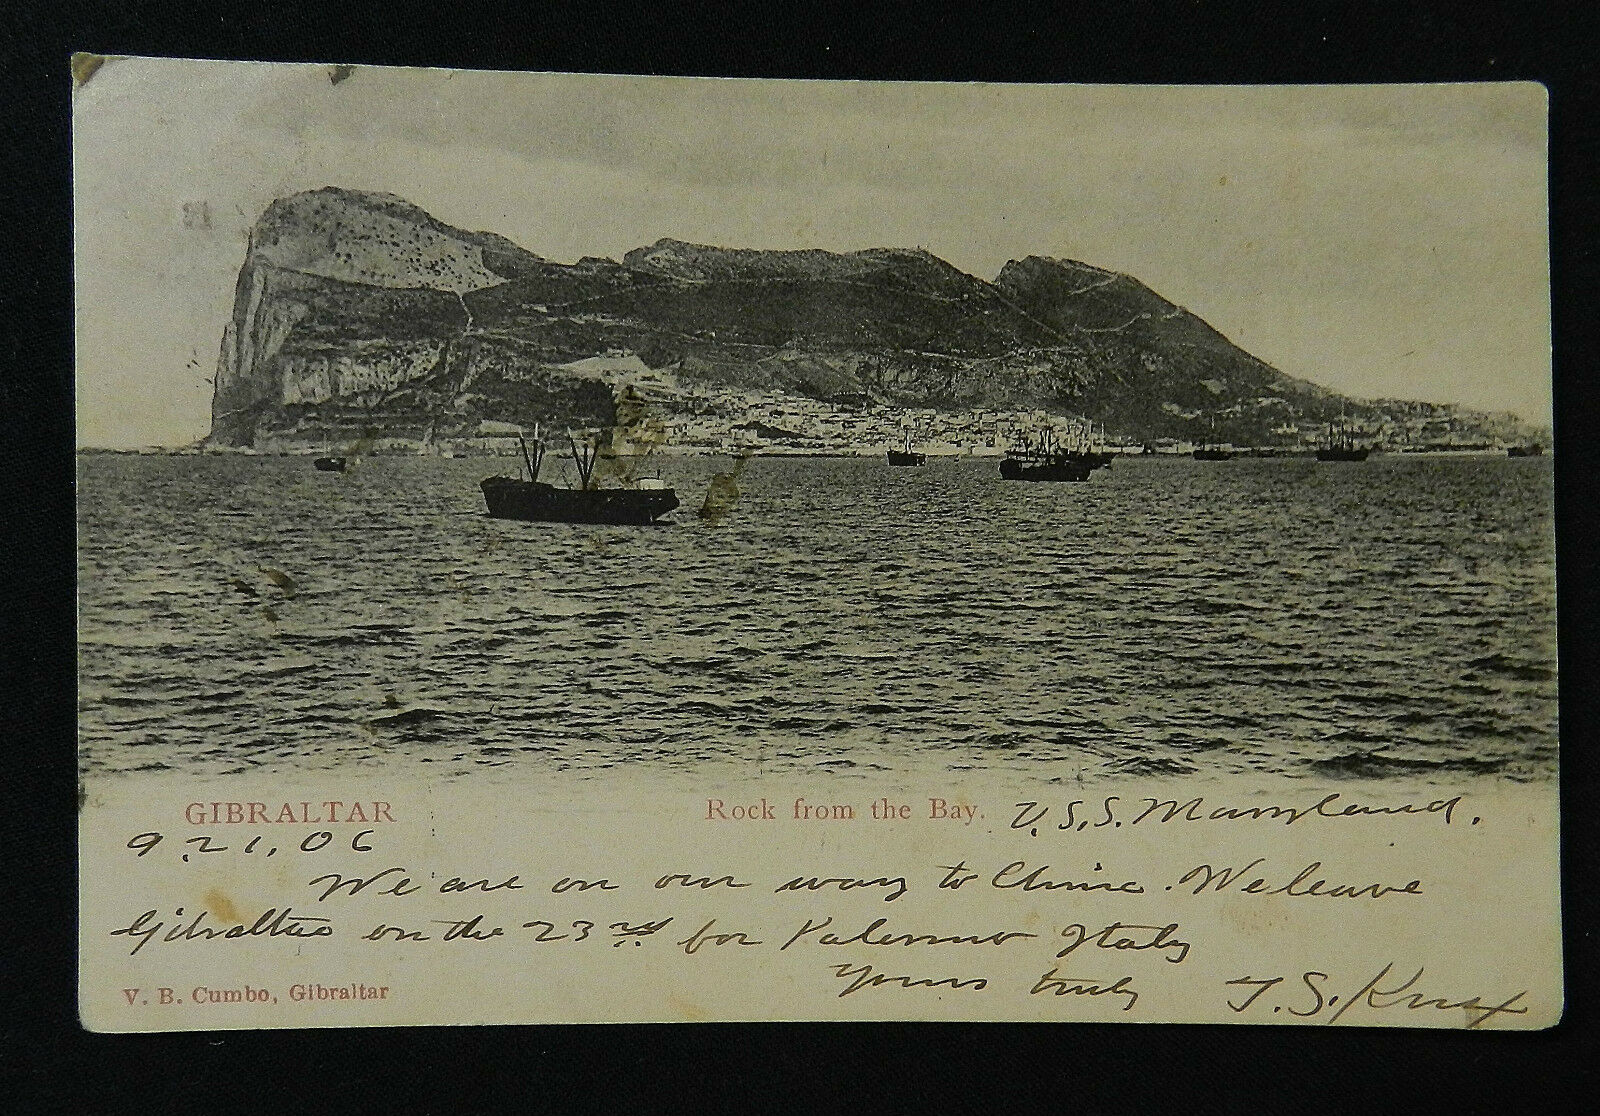 GIBRALTAR
Rock from the Bay. U.S.S. Maryland.
9.21,06
We are on our way to China. We leave
Gibraltar on the 23rd for Palermo Italy
Yours truly T. S. Knox
V. B. Cumbo, Gibraltar